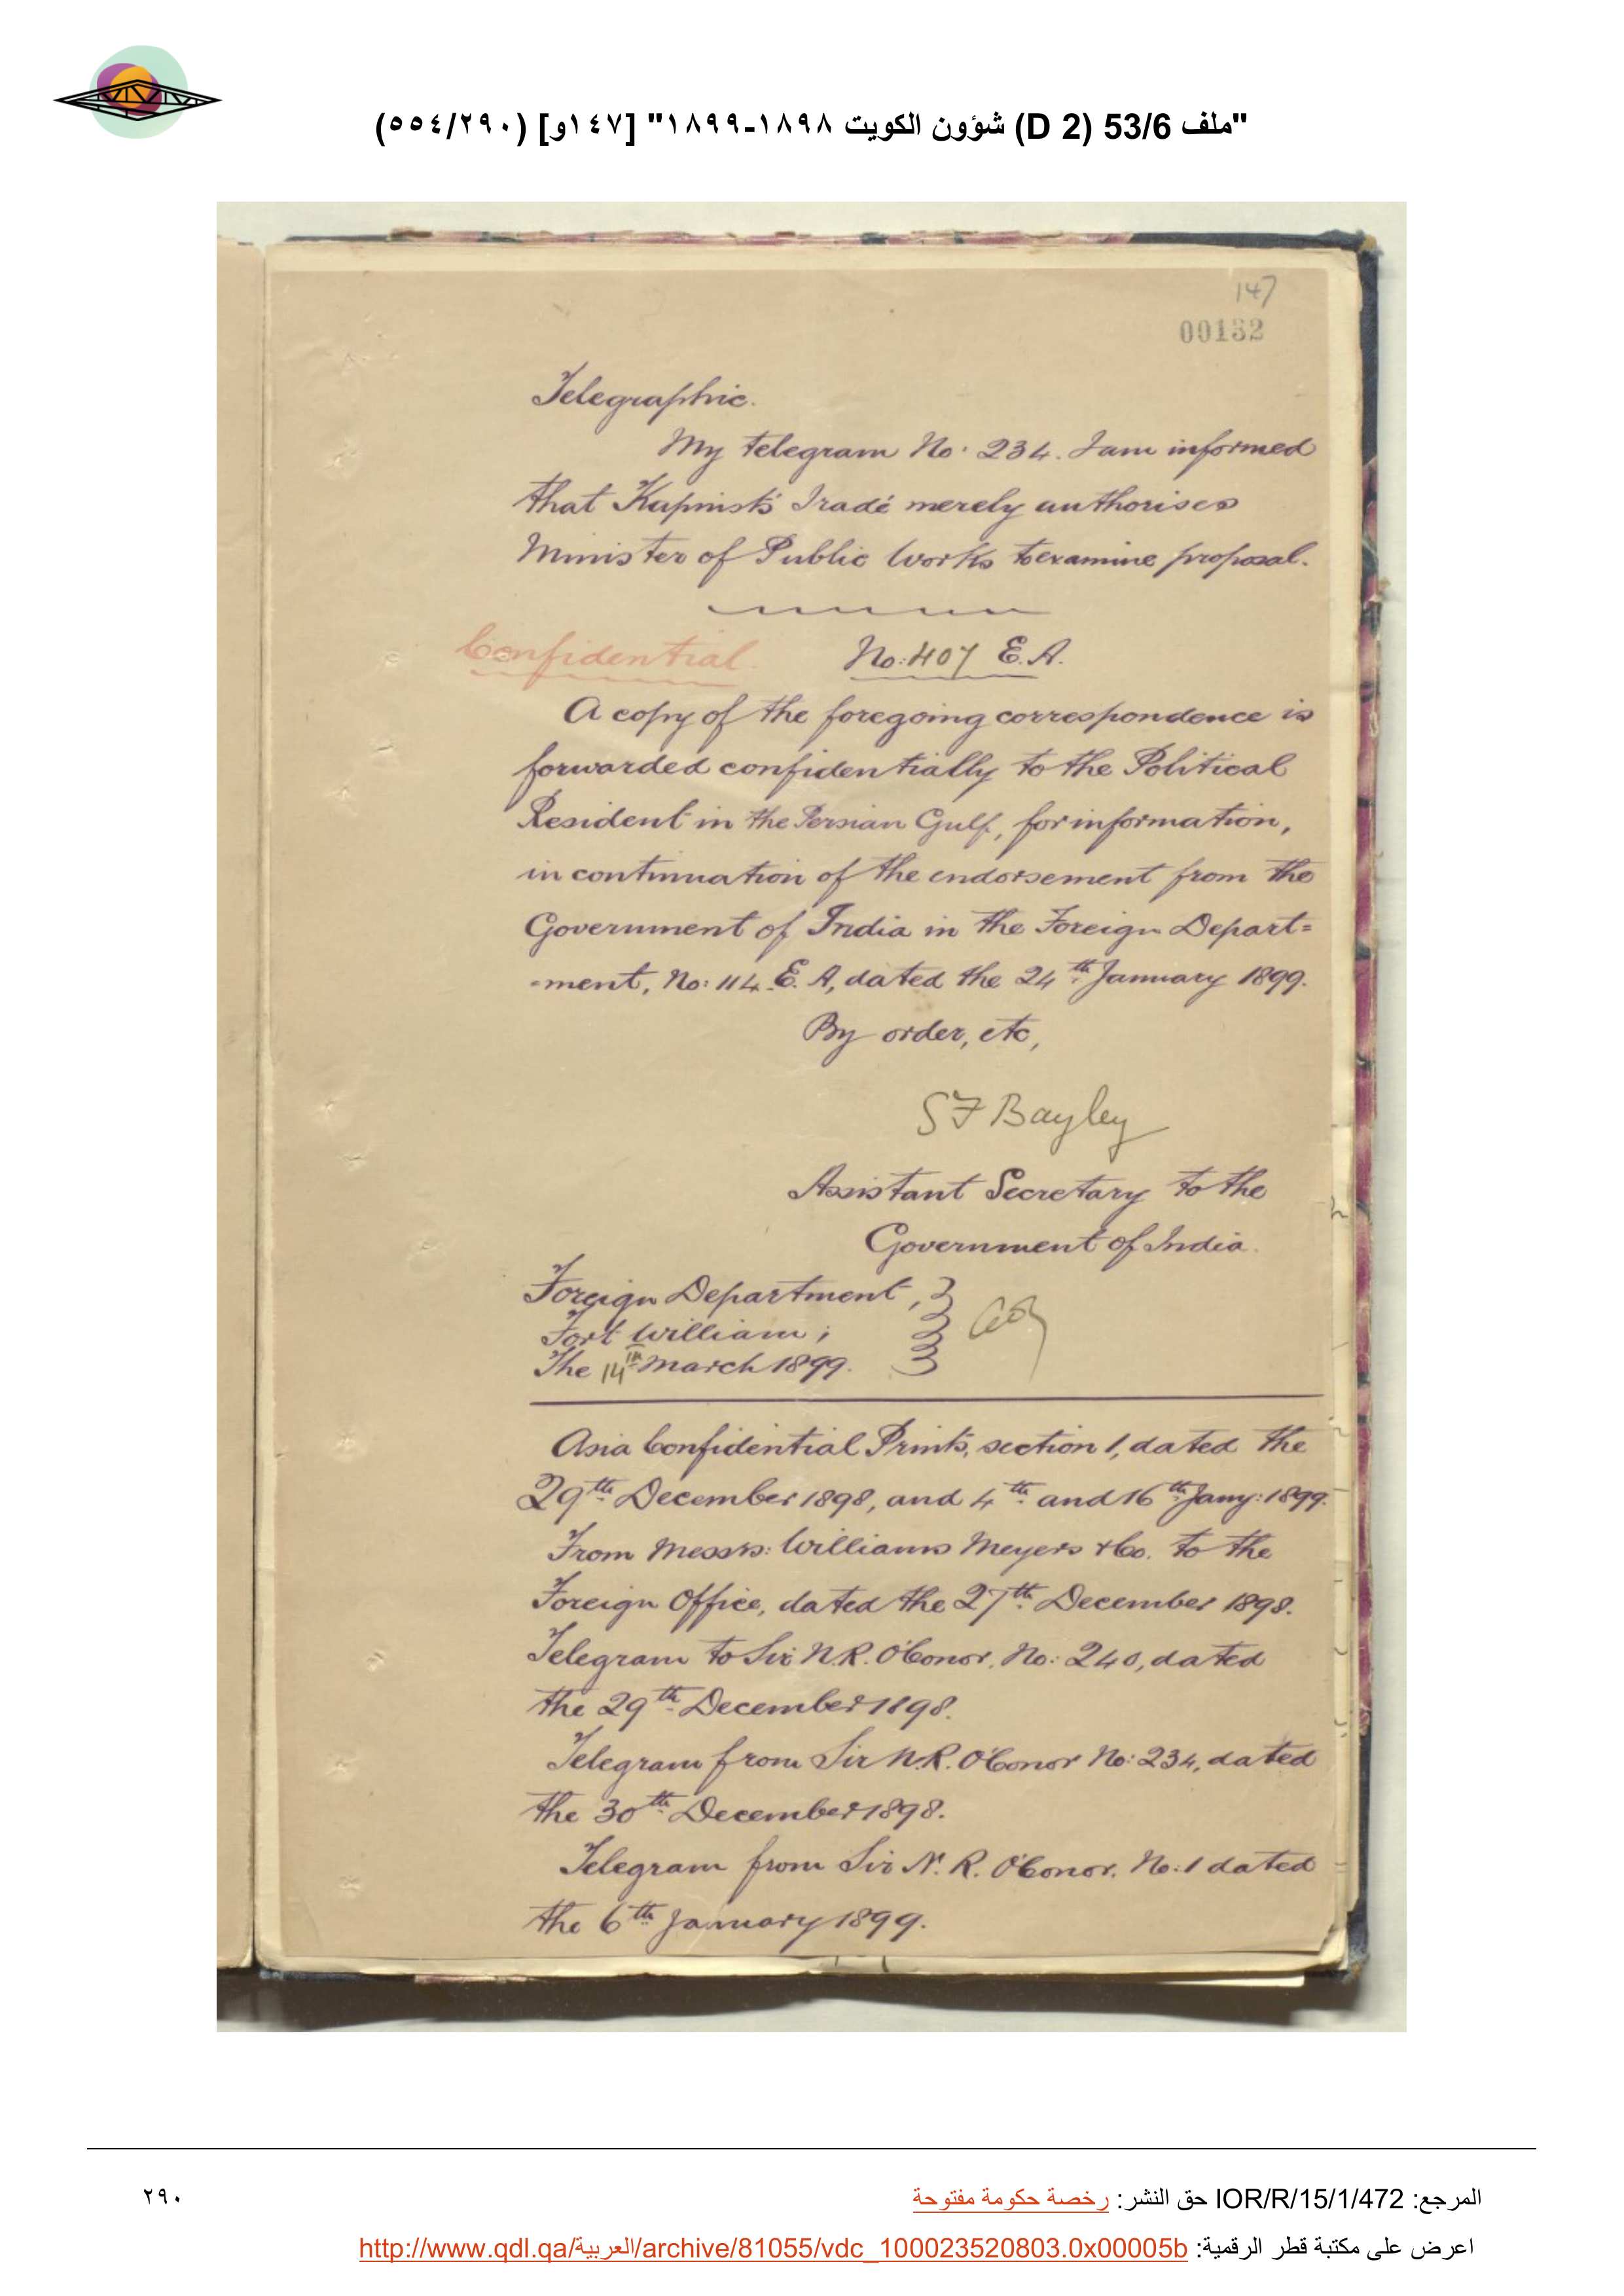 "ملف 53/6 (D 2) شؤون الكويت ١٨٩٨-١٨٩٩" [١٤٧و] (٢٩٠/٥٥٤)
147
00132
Telegraphic.
My telegram No. 234. I am informed
that Kapnist's Iradé merely authorises
Minister of Public Works to examine proposal.
Confidential. No: 407 E.A.
A copy of the foregoing correspondence is
forwarded confidentially to the Political
Resident in the Persian Gulf, for information,
in continuation of the endorsement from the
Government of India in the Foreign Depart=
-ment, No: 114. E. A, dated the 24th January 1899.
By order, etc,
S F Bayley
Assistant Secretary to the
Government of India.
Foreign Department,
Fort William;
The 14th March 1899.
Asia Confidential Prints, section 1, dated the
29th December 1898, and 4th and 16th Jany: 1899.
From Messrs: Williams Meyers & Co. to the
Foreign Office, dated the 27th December 1898.
Telegram to Sir N.R. O'Conor, No: 240, dated
the 29th December 1898.
Telegram from Sir N.R. O'Conor No: 234, dated
the 30th December 1898.
Telegram from Sir N. R. O'Conor. No: 1 dated
the 6th January 1899.
المرجع: IOR/R/15/1/472 حق النشر: رخصة حكومة مفتوحة
٢٩٠
اعرض على مكتبة قطر الرقمية: http://www.qdl.qa/العربية/archive/81055/vdc_100023520803.0x00005b